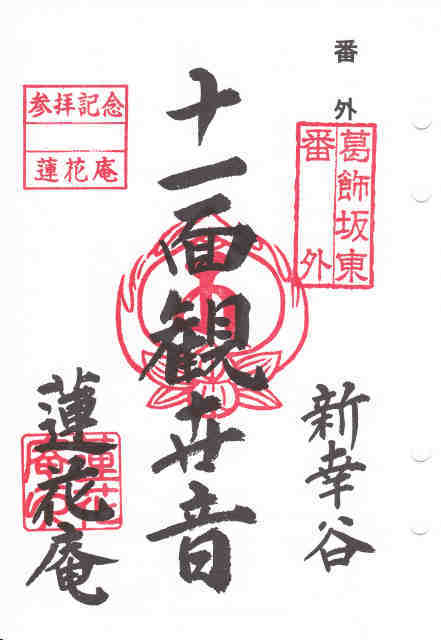 番外
葛飾坂東
番外
新幸谷
十一面観世音
参拝記念
蓮花庵
蓮花庵